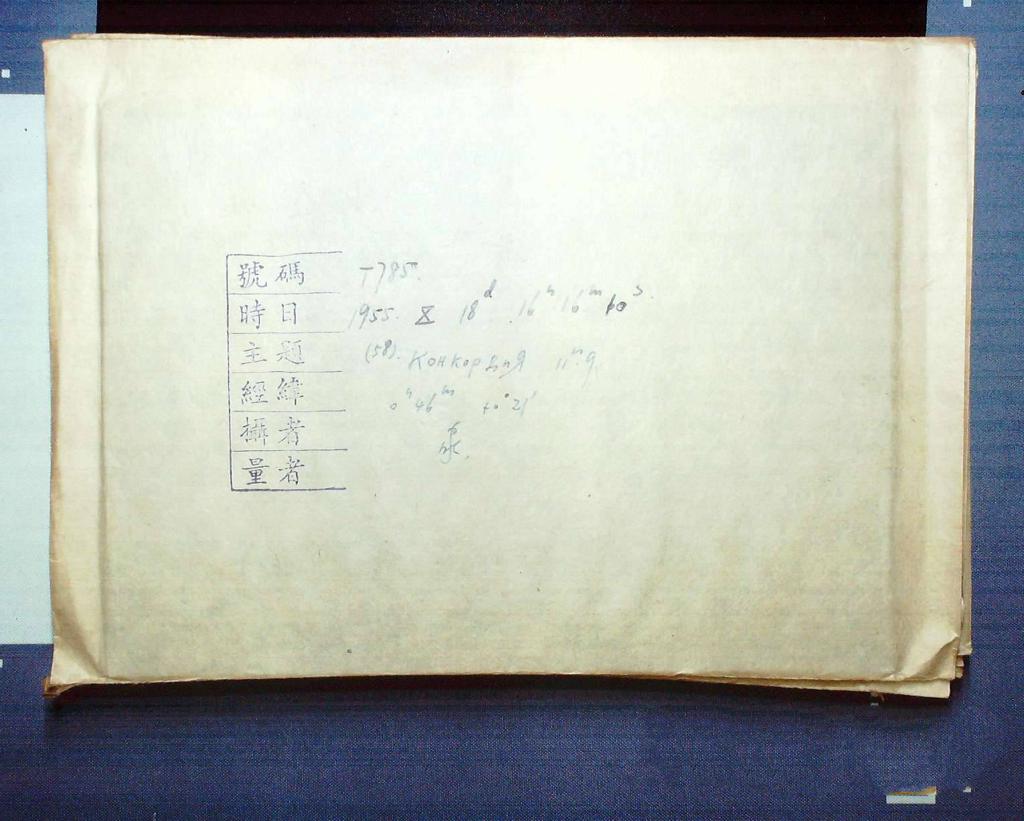 號碼 T785.
時日 1955. X 18d 16h 16m 60s.
主題 (58). Конкордия 11m.9
經緯 0h 46m +0° 21'
攝者
量者